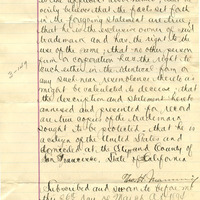 verily believes that the facts set forth
in the foregoing statement are true;
that he is the exclusive owner of said
trademark and has the right to the
use of the same; that no other person
firm or corporation has the right to
such either in the identical form or
any such near resemblance thereto as
might be calculated to deceive; that
the description and statement hereto
annexed and presented for record
are true copies of the trademark
sought to be protected, that he is
a citizen of the United States and
domiciled at the City and County of
San Francisco, State of California
Subscribed and sworn to before me